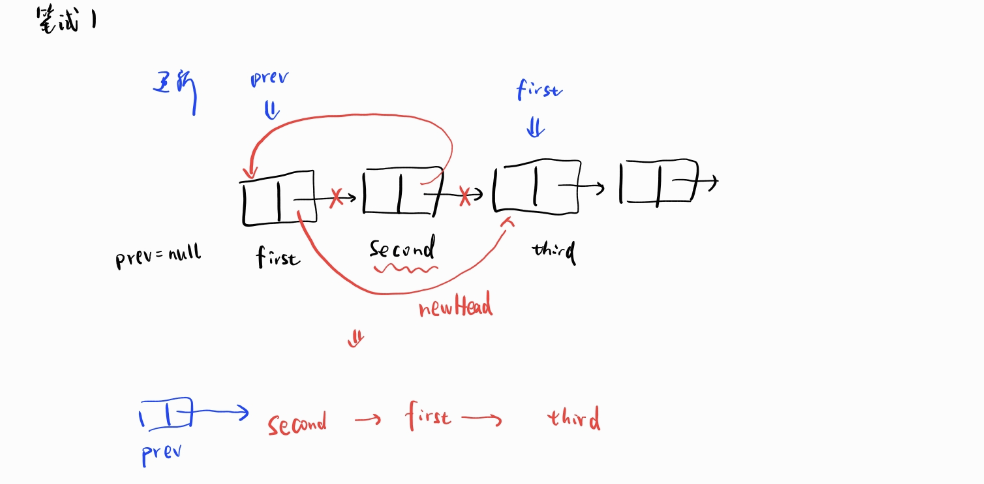 笔试1
更新 prev first
prev=null first second third
newHead
second → first → third
prev